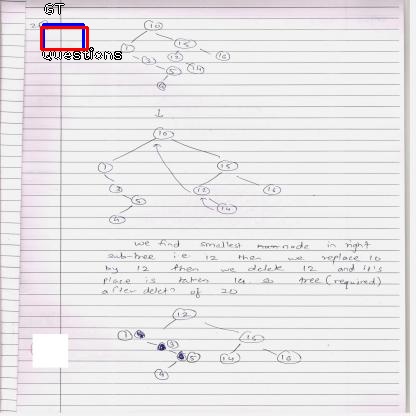 GT
2)
Questions
10
1 15
3 12 16
5 14
4
10
1 15
3 12 16
5 14
4
we find smallest node in right
sub-tree i.e 12 then we replace 10
by 12 then we delete 12 and it's
place is taken 14 so tree (required)
after delet? of 20
12
1 3 5 4
14 16